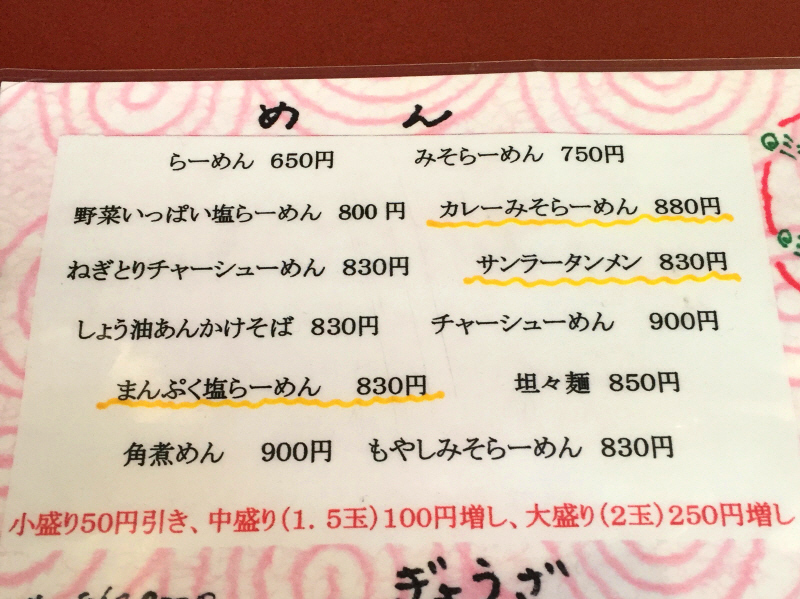 めん
らーめん 650円 みそらーめん 750円
野菜いっぱい塩らーめん 800円 カレーみそらーめん 880円
ねぎとりチャーシューめん 830円 サンラータンメン 830円
しょう油あんかけそば 830円 チャーシューめん 900円
まんぷく塩らーめん 830円 坦々麺 850円
角煮めん 900円 もやしみそらーめん 830円
小盛り50円引き、中盛り(1.5玉)100円増し、大盛り(2玉)250円増し
ぎょうざ